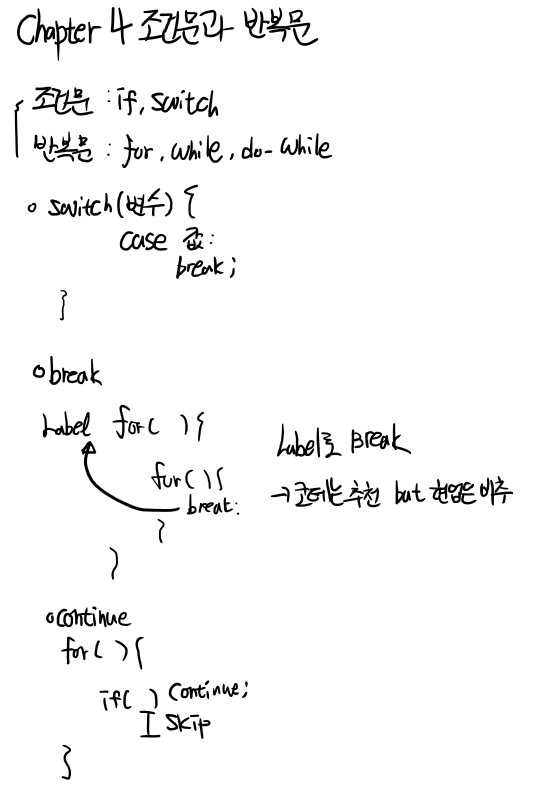 Chapter 4 조건문과 반복문
조건문 : if, switch
반복문 : for, while, do-while
o switch(변수) {
case 값:
break;
}
o break
Label for( ) {
for( ) {
break;
}
}
Label로 Break
→ 코테는 추천 but 현업은 비추
o continue
for( ) {
if( ) continue;
skip
}